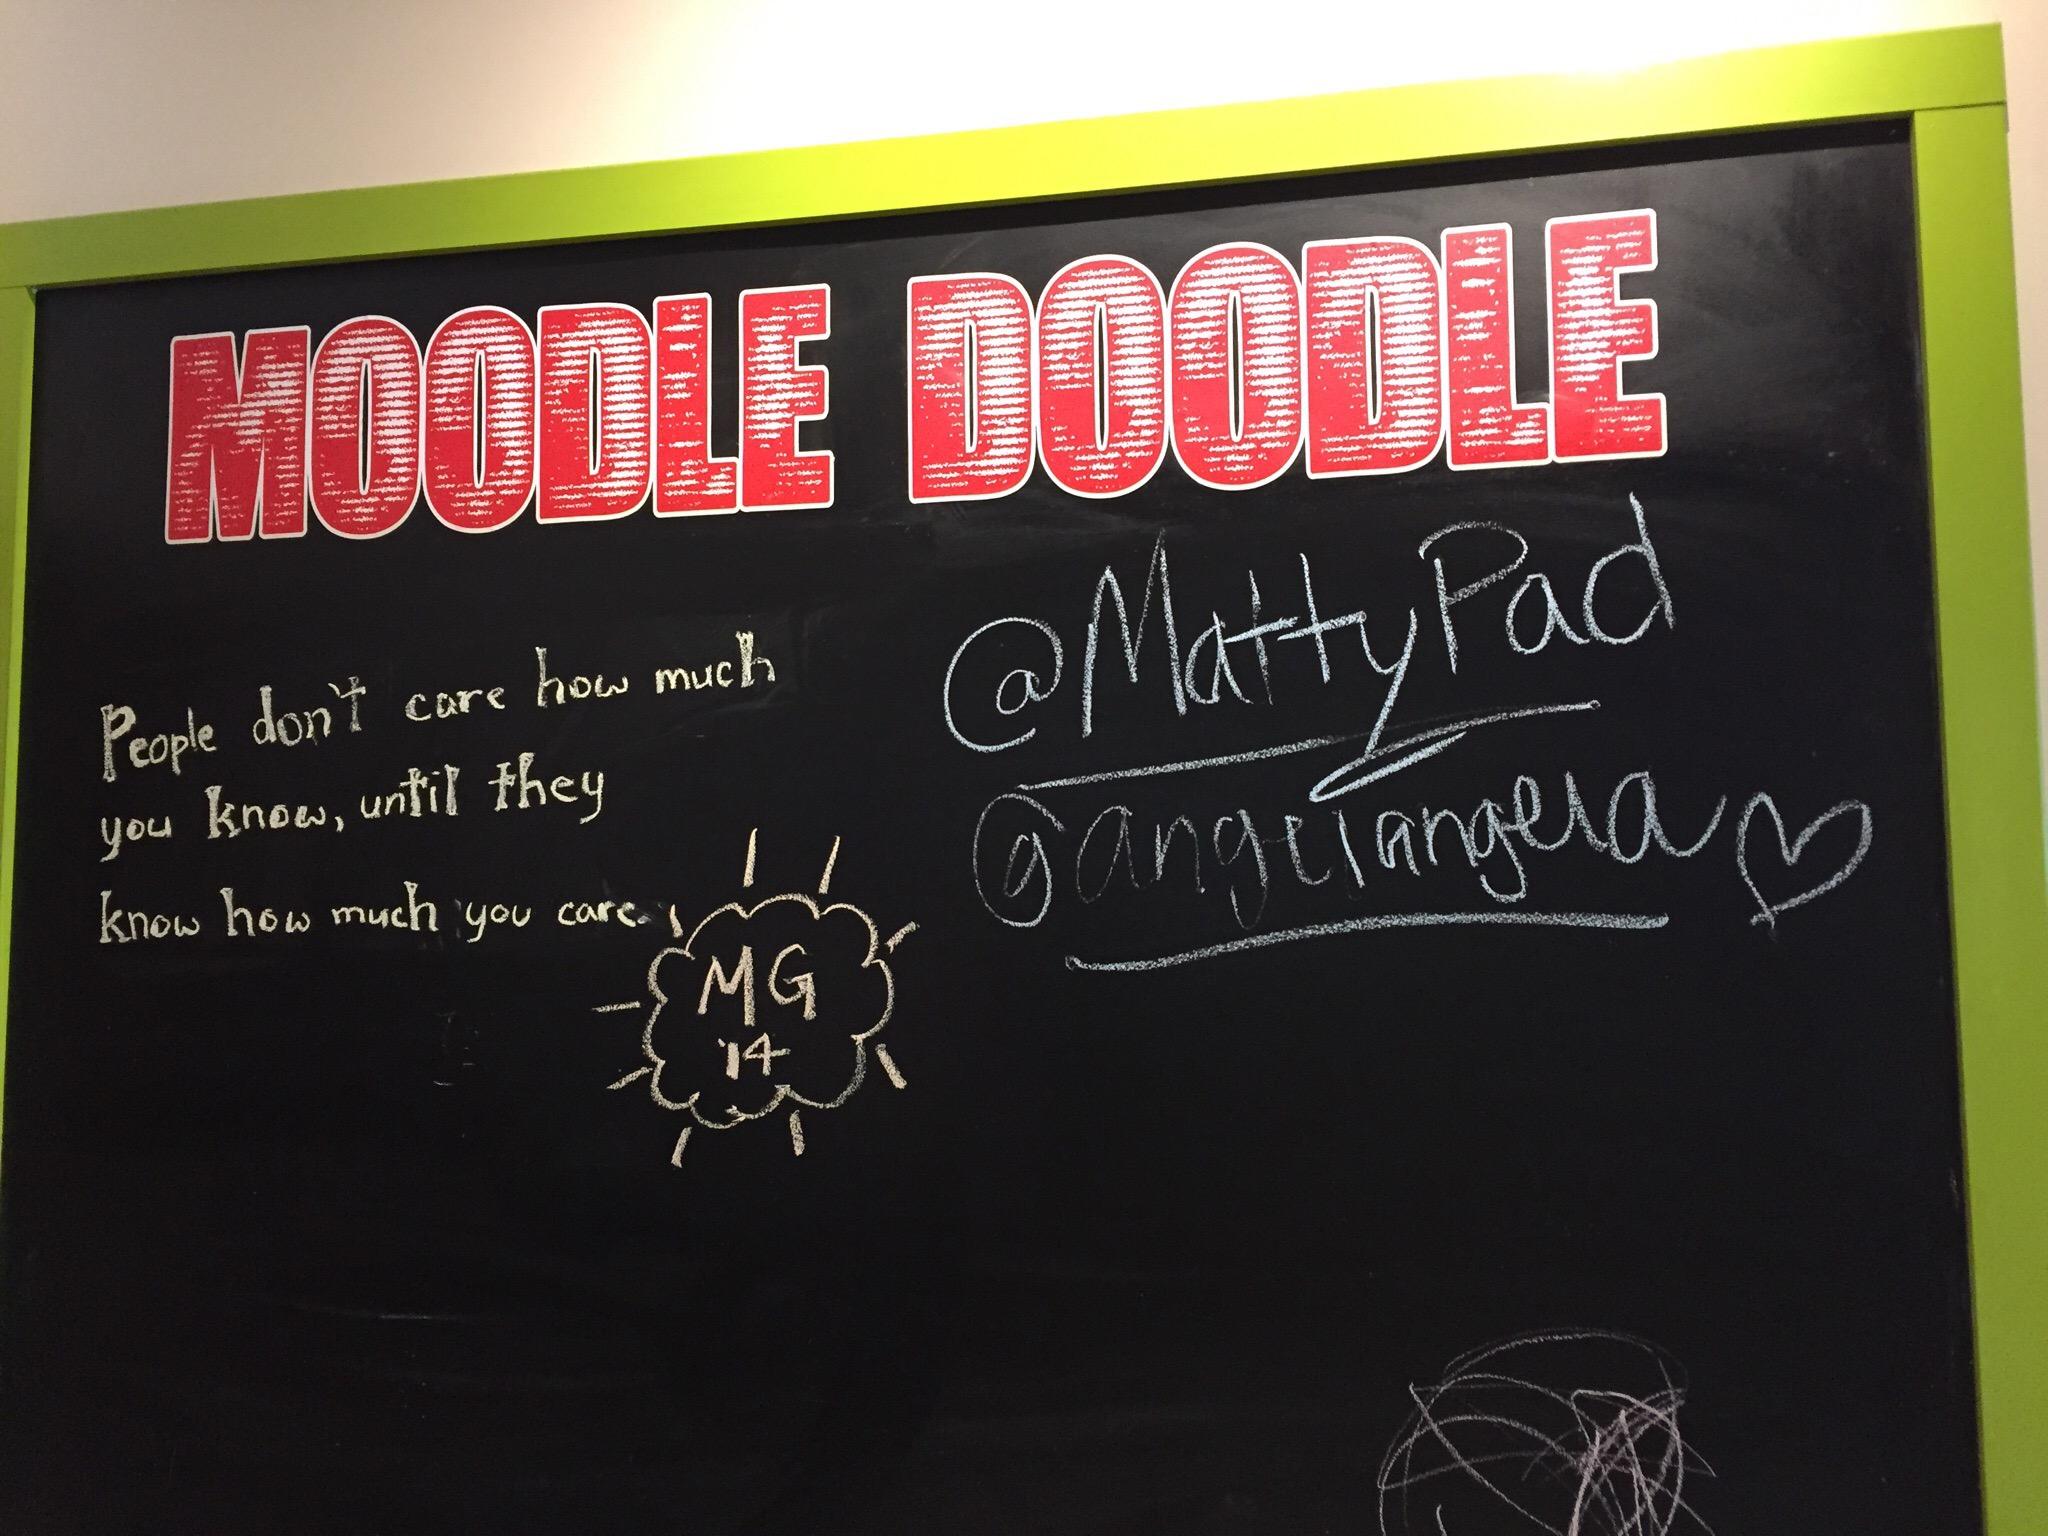 MOODLE DOODLE
People don't care how much
you know, until they
know how much you care.
MG
'14
@MattyPad
@angelangela